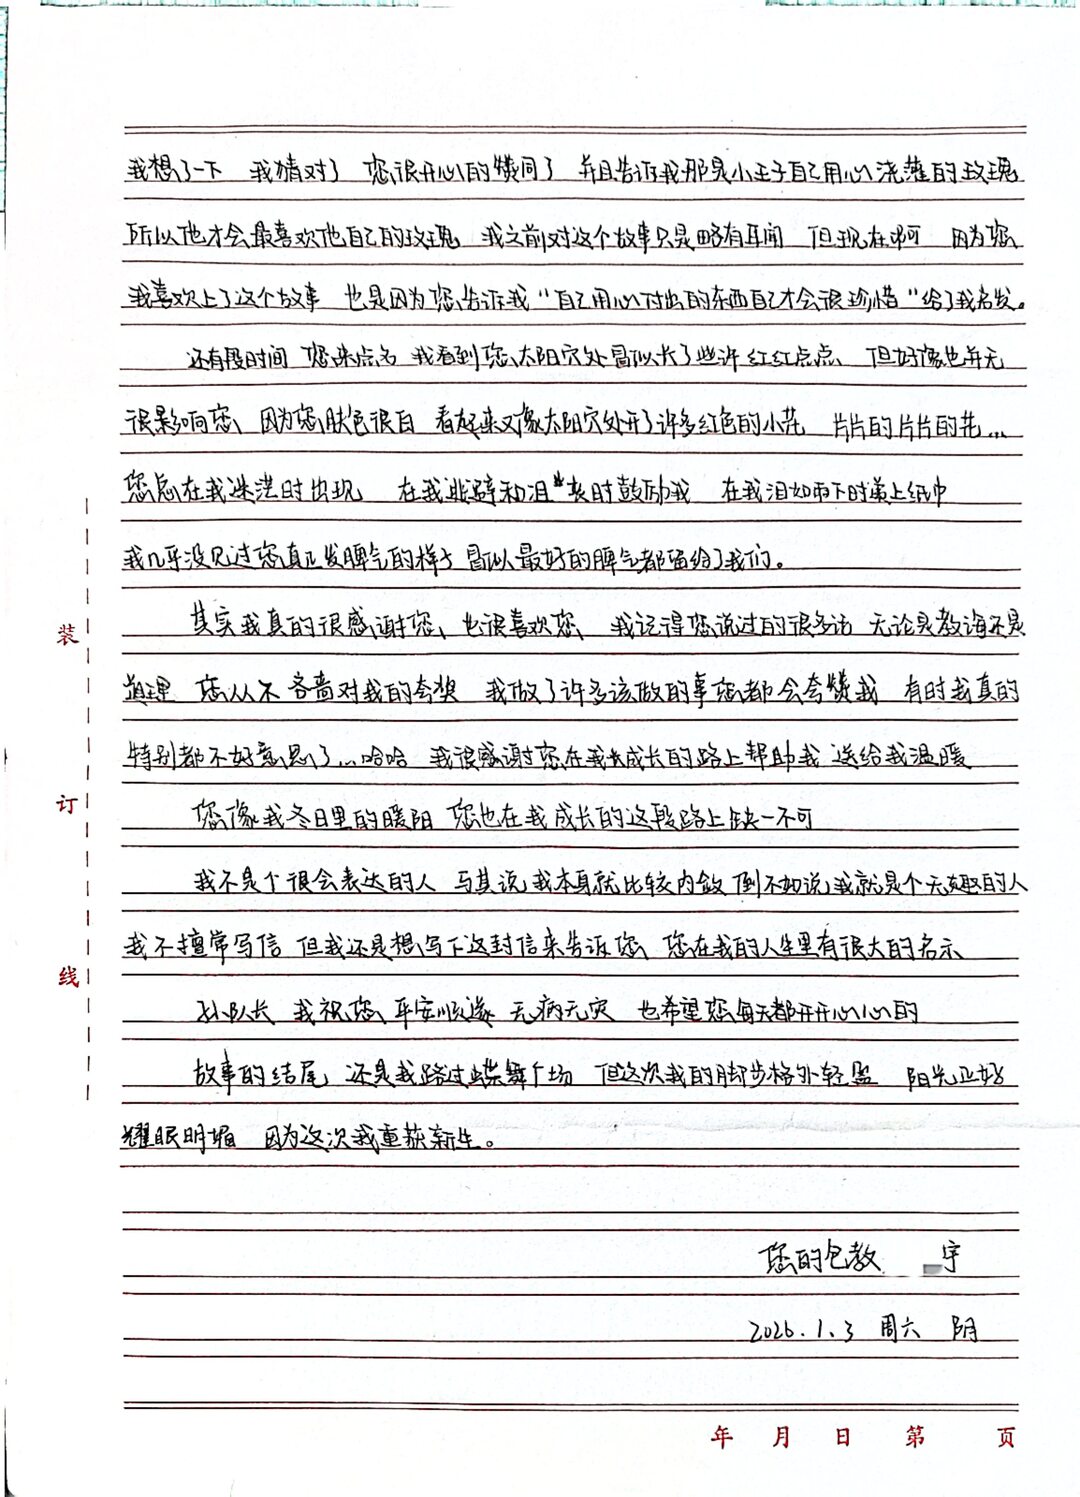 我想了一下 我猜对了 您很开心的赞同了 并且告诉我那是小王子自己用心浇灌的玫瑰
所以他才会最喜欢他自己的玫瑰 我之前对这个故事只是略有耳闻 但现在啊 因为您
我喜欢上了这个故事 也是因为您告诉我“自己用心付出的东西自己才会很珍惜”给了我启发。
还有段时间 您来点名 我看到您太阳穴处冒似长了些许红红点点 但好像也并无
很影响您 因为您肤色很白 看起来又像太阳穴处开了许多红色的小花 片片的片片的花...
您总在我迷茫时出现 在我逃避和沮丧时鼓励我 在我泪如雨下时递上纸巾
我几乎没见过您真正发脾气的样子 冒似最好的脾气都留给了我们。
其实我真的很感谢您 也很喜欢您 我记得您说过的很多话 无论是教诲还是
道理 您从不吝啬对我的夸奖 我做了许多该做的事您都会夸赞我 有时我真的
特别都不好意思了...哈哈 我很感谢您在我成长的路上帮助我 送给我温暖
您像我冬日里的暖阳 您也在我成长的这段路上缺一不可
我不是个很会表达的人 与其说我本身就比较内敛 倒不如说我就是个无趣的人
我不擅常写信 但我还是想写下这封信来告诉您 您在我的人生里有很大的启示
孙队长 我祝您 平安顺遂 无病无灾 也希望您每天都开开心心的
故事的结尾 还是我路过蝶舞广场 但这次我的脚步格外轻盈 阳光正好
耀眼明媚 因为这次我重获新生。
您的包教 宇
2026.1.3 周六 阴
装
订
线
年 月 日 第 页